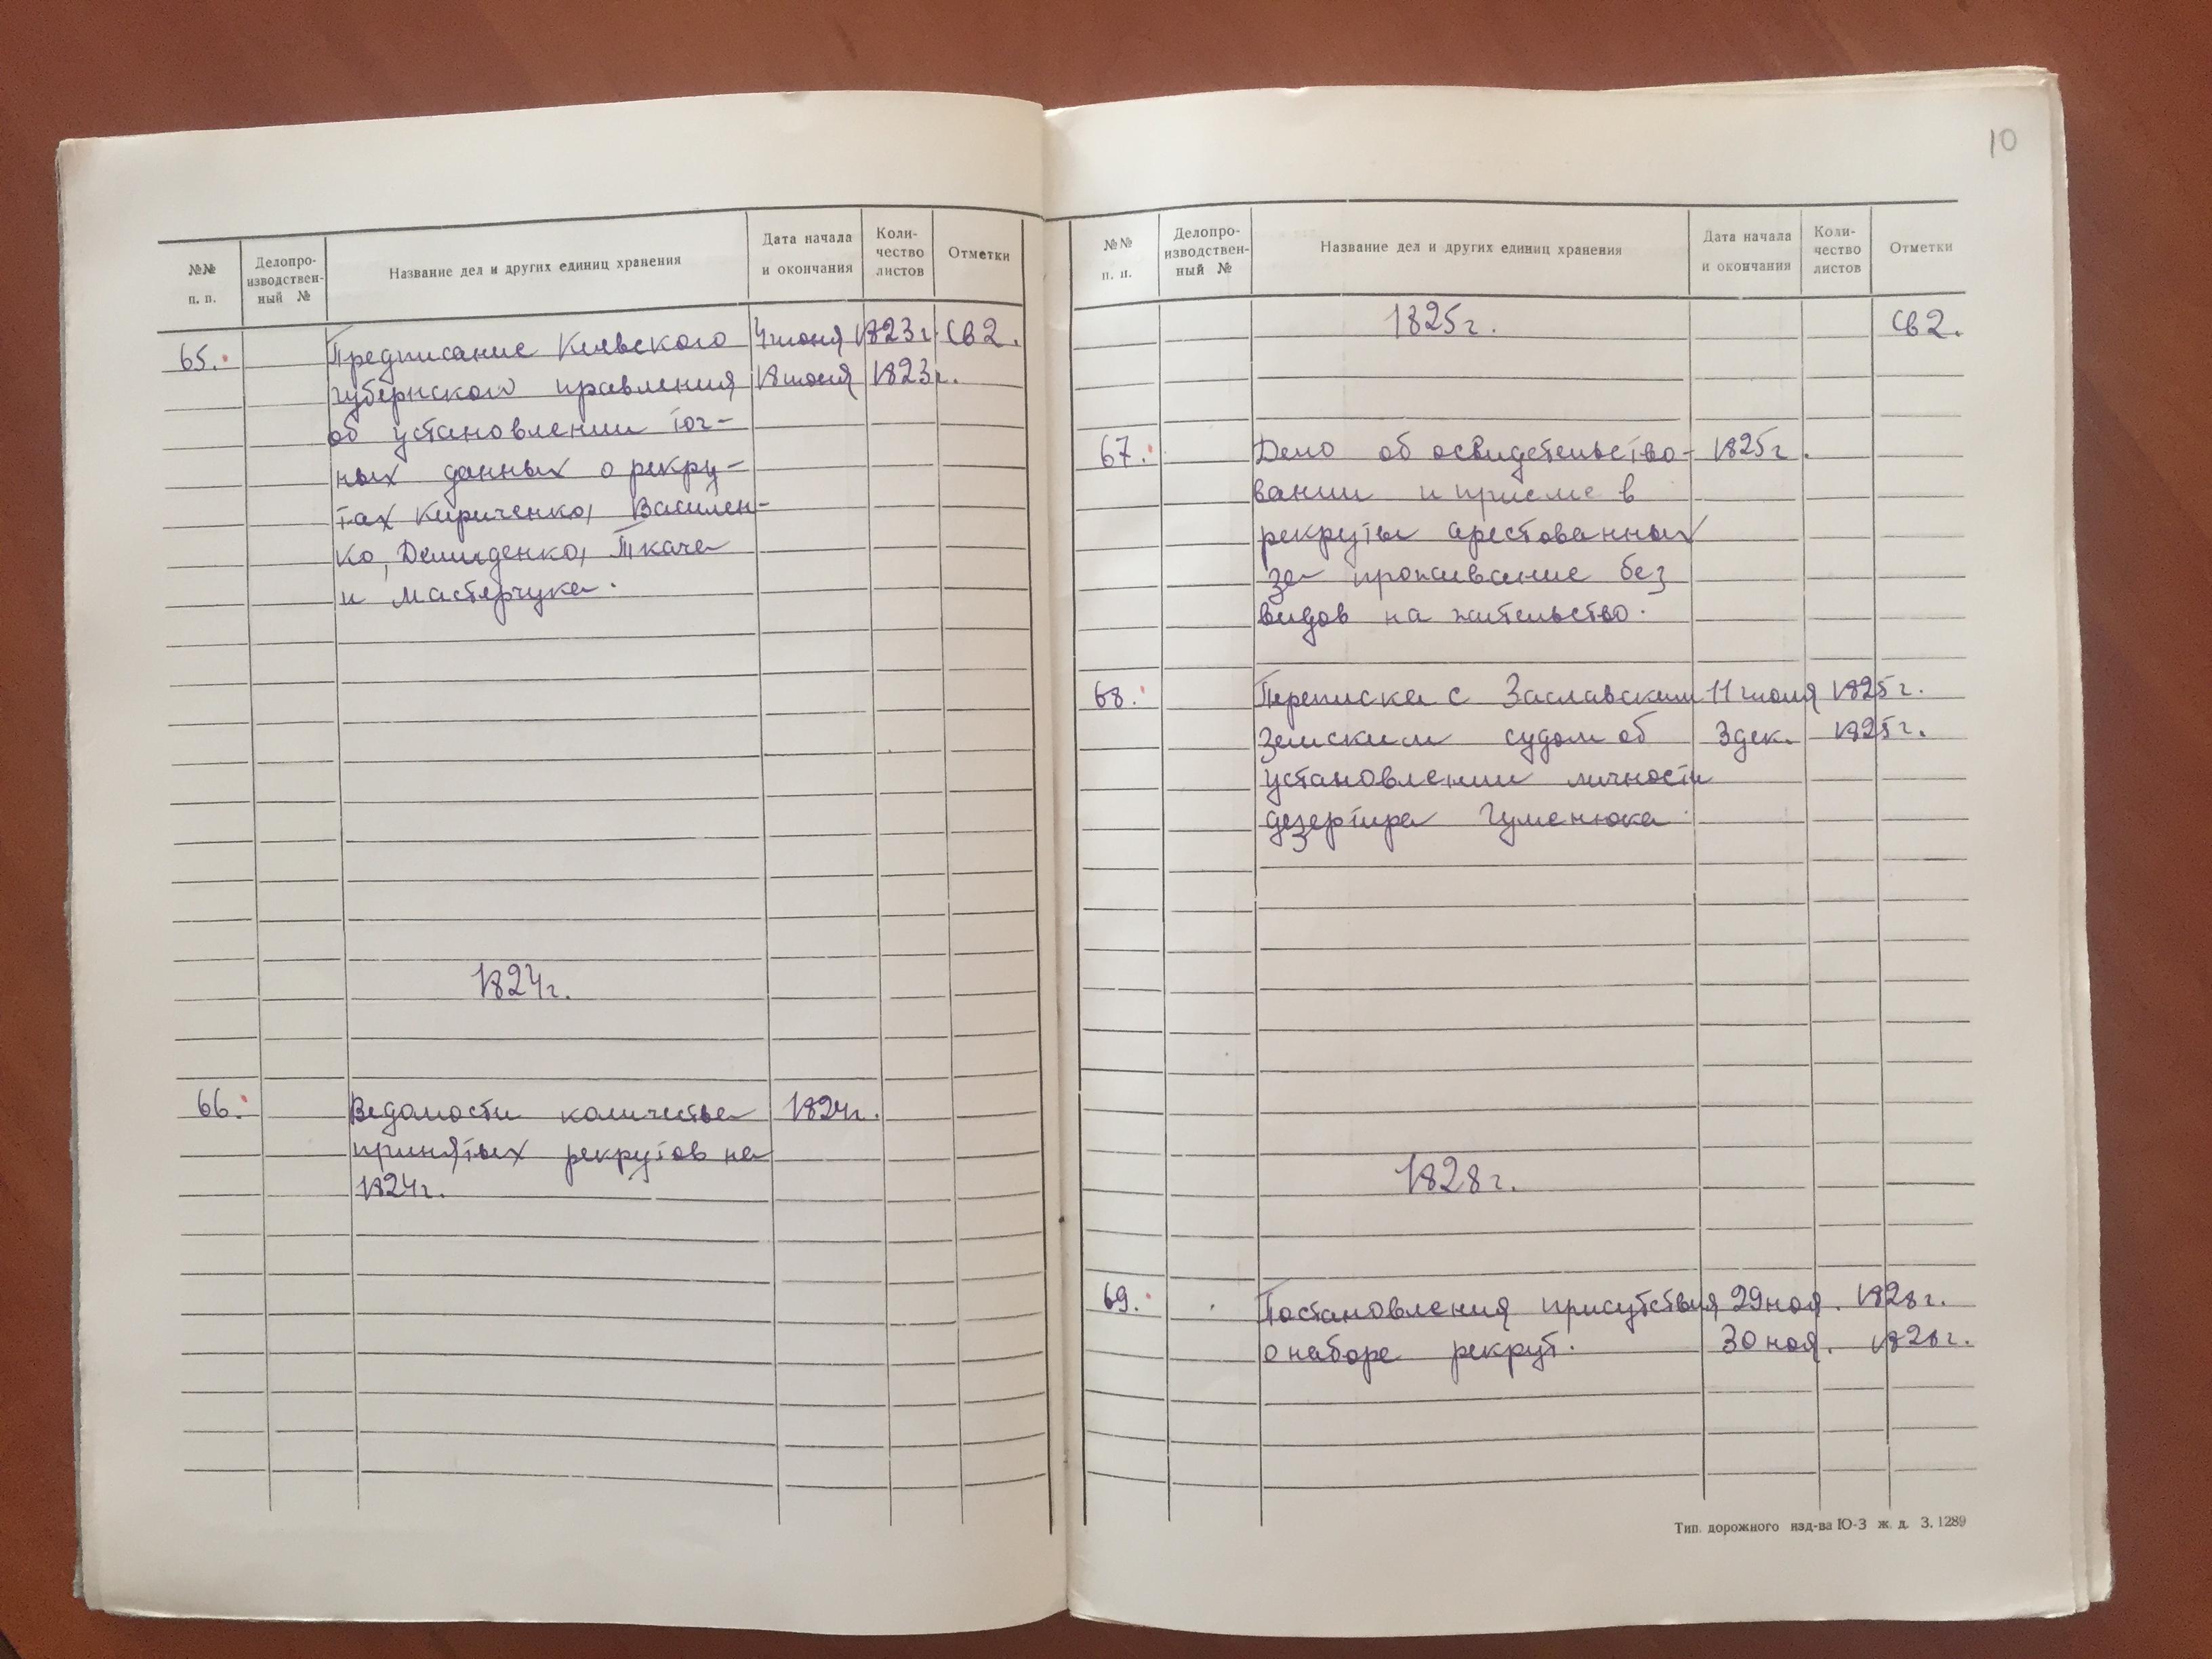 №№ п. п. Делопро- изводствен- ный № Название дел и других единиц хранения Дата начала и окончания Коли- чество листов Отметки
65. Предписание Киевского 4 июня 1823 г. Св 2.
губернского правления 18 июня 1823 г.
об установлении точ-
ных данных о рекру-
тах Кириченко, Василен-
ко, Демиденко, Ткача
и Мастерчука.
1824 г.
66. Ведомости количества 1824 г.
принятых рекрутов на
1824 г.
10
№№ п. п. Делопро- изводствен- ный № Название дел и других единиц хранения Дата начала и окончания Коли- чество листов Отметки
1825 г. Св 2.
67. Дело об освидетельство- 1825 г.
вании и приеме в
рекруты арестованных
за проживание без
видов на жительство.
68. Переписка с Заславским 11 июля 1825 г.
земским судом об 3 дек. 1825 г.
установлении личности
дезертира Гуменюка.
1828 г.
69. Постановления присутствия 29 ноя. 1828 г.
о наборе рекрут. 30 ноя. 1828 г.
Тип. дорожного изд-ва Ю-З ж. д. З. 1289